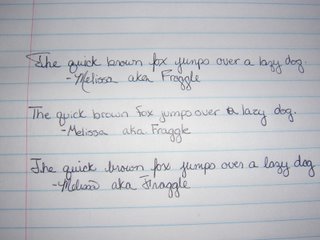 The quick brown fox jumps over a lazy dog.
-Melissa aka Fraggle
The quick brown fox jumps over a lazy dog.
-Melissa aka Fraggle
The quick brown fox jumps over a lazy dog
-Melissa aka Fraggle